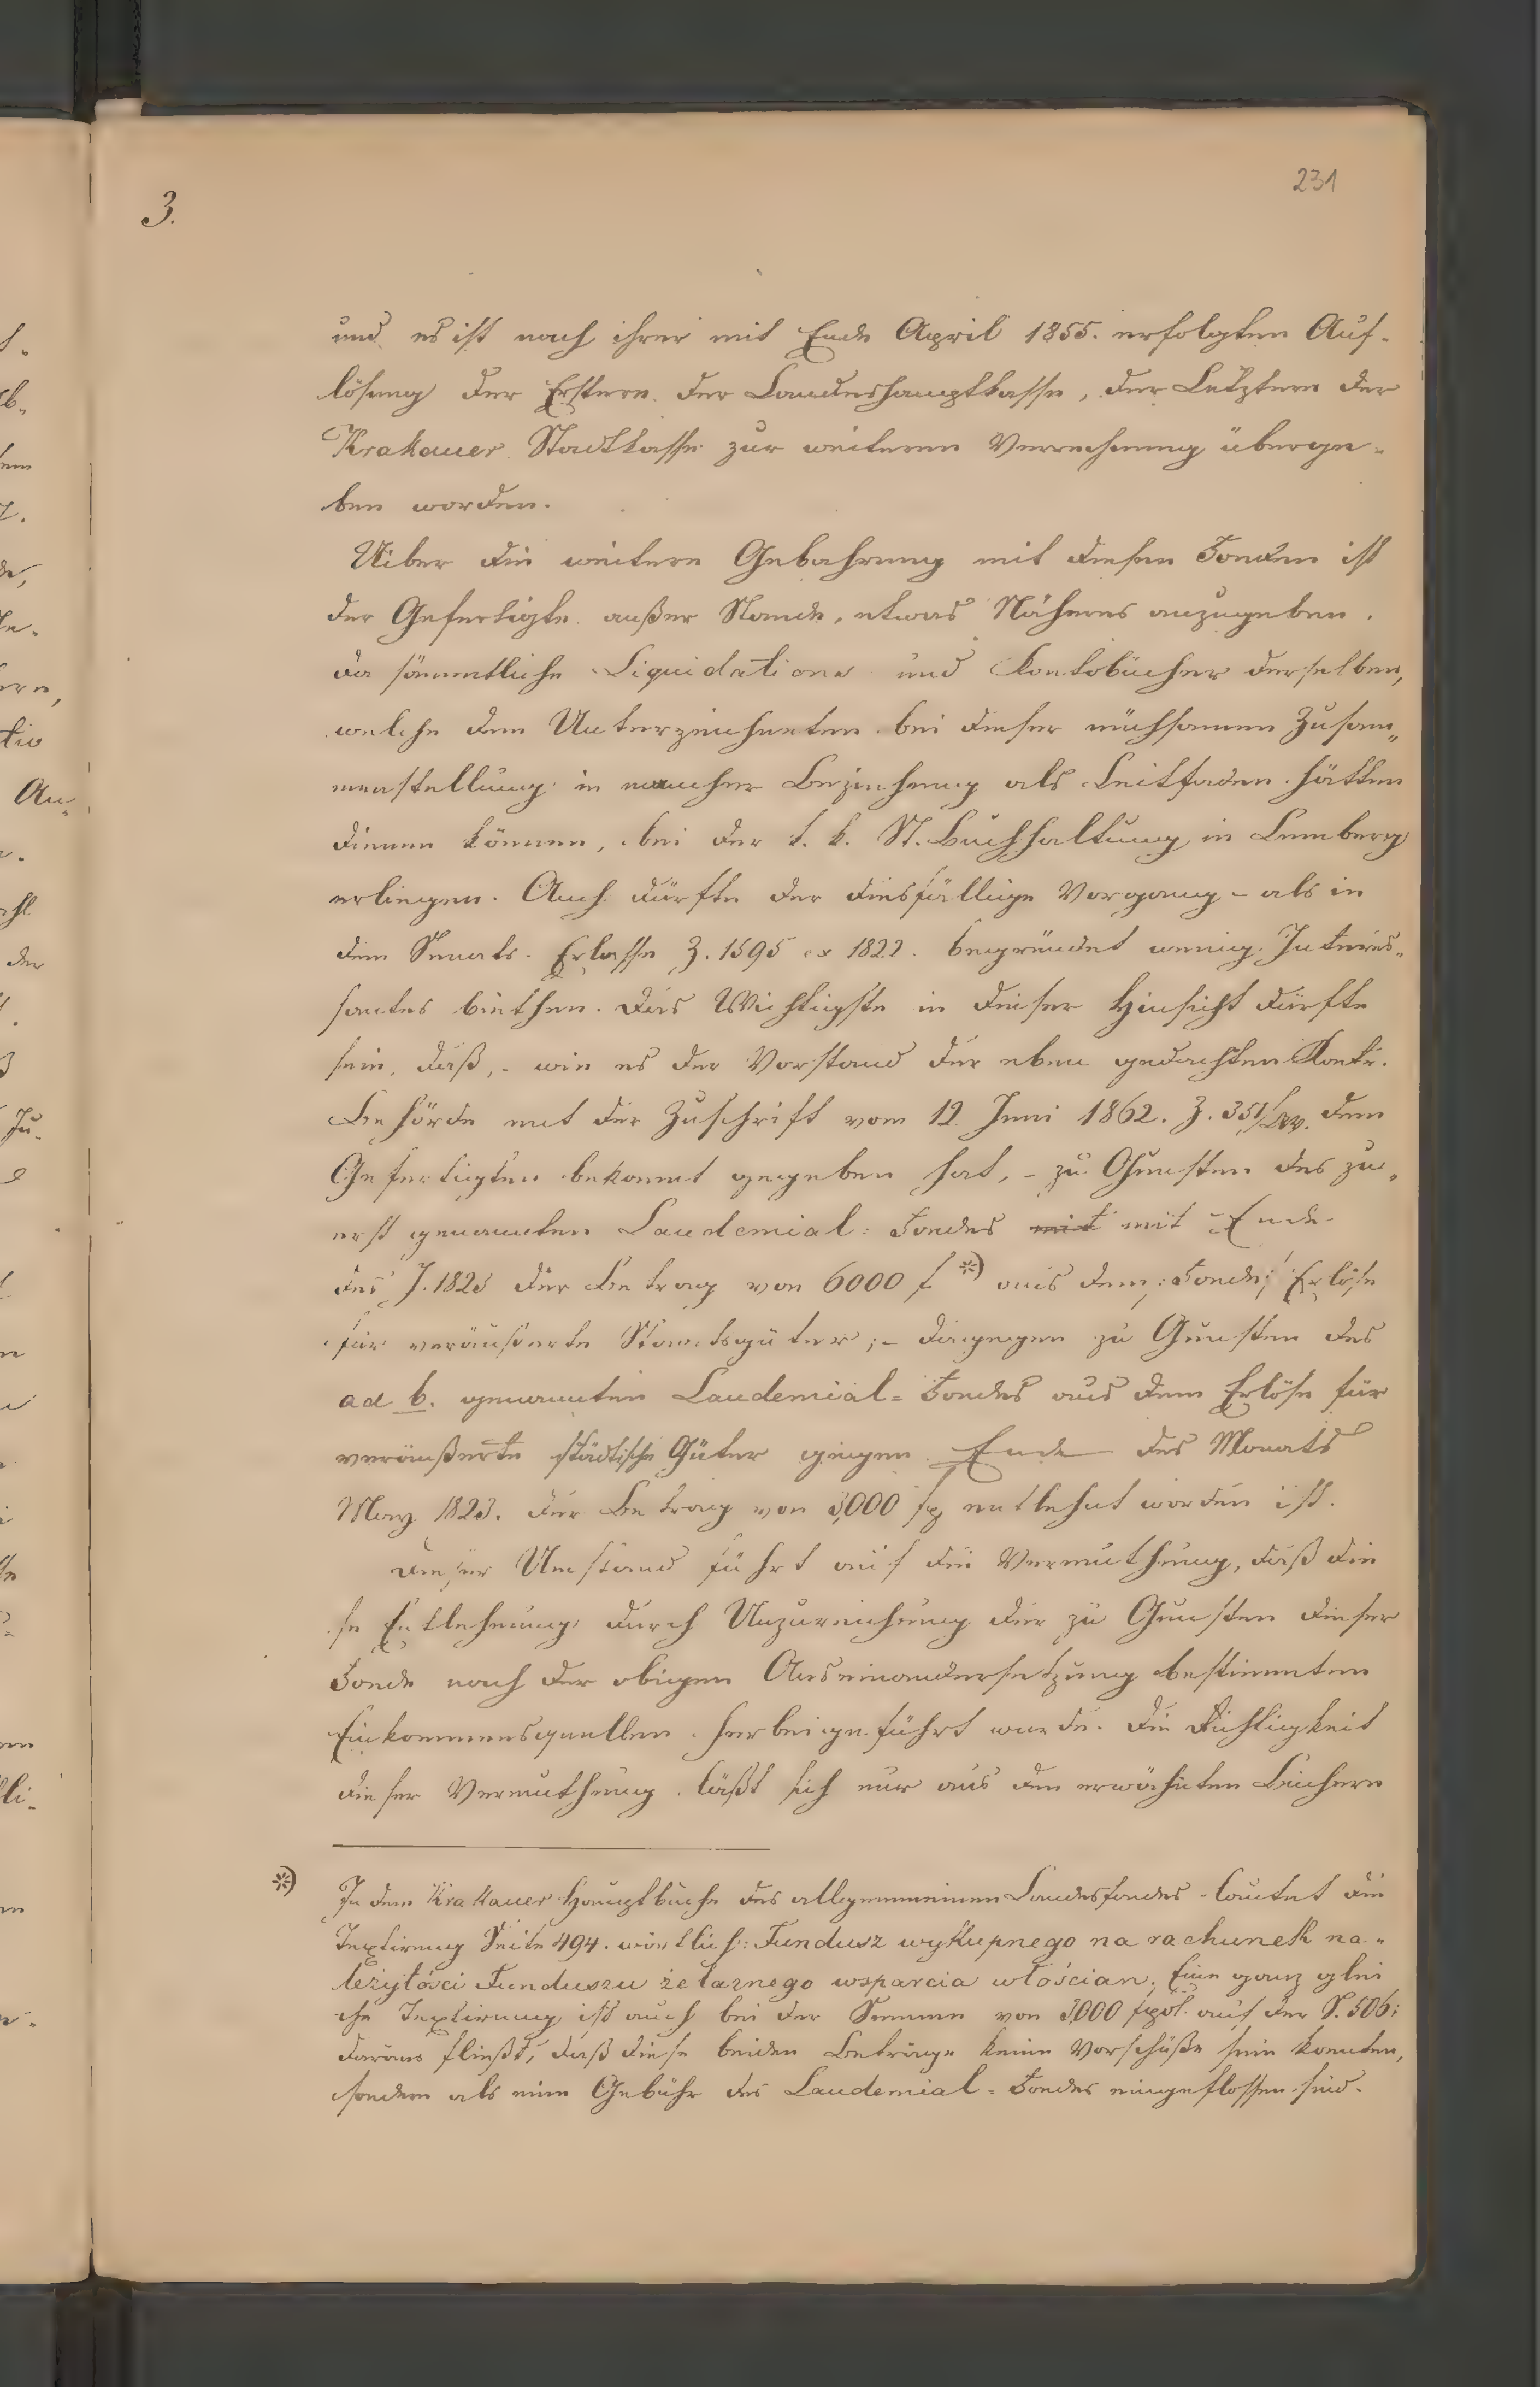 231
3.
und es ist nach ihrer mit Ende April 1855. erfolgten Auf-
lösung der Erstere der Landeshauptkasse, der Letztere der
Krakauer Stadtkasse zur weiteren Verrechnung überge-
ben worden.
Uiber die weitere Gebahrung mit diesen Fonden ist
der Gefertigte außer Stande, etwas Näheres anzugeben,
da sämmtliche Liquidations und Kontobücher derselben,
welche dem Unterzeichneten bei dieser mühsamen Zusam„
menstellung in mancher Beziehung als Leitfaden hätten
dienen können, bei der k. k. St. Buchhaltung in Lemberg
erliegen. Auch dürfte der diesfällige Vorgang – als in
dem Senats-Erlasse Z. 1595 ex 1822. begründet wenig Interes„
santes biethen. Das Wichtigste in dieser Hinsicht dürfte
sein, daß, – wie es der Vorstand der eben gedachten Kontr.
Behörde mit der Zuschrift vom 12 Juni 1862. Z. 351/ dem
Gefertigten bekannt gegeben hat, – zu Gunsten des zu„
erst genannten Laudemial: Fondes mit mit Ende
des J. 1823 der Betrag von 6000 f *) aus dem :Fonde: Erlöse
für veräußerte Staatsgüter; – dagegen zu Gunsten des
ad b. genannten Laudemial= Fondes aus dem Erlöse für
veräußerte städtische Güter gegen Ende des Monats
May 1823. der Betrag von 3,000 fp entlehnt worden ist.
Dieser Umstand führt auf die Vermuthung, daß die
se Entlehnung durch Unzureichung der zu Gunsten dieser
Fonde nach der obigen Auseinandersetzung bestimmten
Einkommensquellen herbeigeführt wurde. Die Richtigkeit
dieser Vermuthung läßt sich nur aus den erwähnten Büchern
*) In dem Krakauer Hauptbuche des allgemeineinen Landesfondes lautet die
Textirung Seite 494. wörtlich: Fundusz wykupnego na rachunek na„
leżytości Funduszu żelaznego wsparcia włościan. Eine ganz glei
che Textirung ist auch bei der Summe von 3000 fpol. auf der S. 506:
daraus fließt, daß diese beiden Beträge keine Vorschüße sein konnten,
sondern als eine Gebühr des Laudemial= Fondes eingeflossen sind.